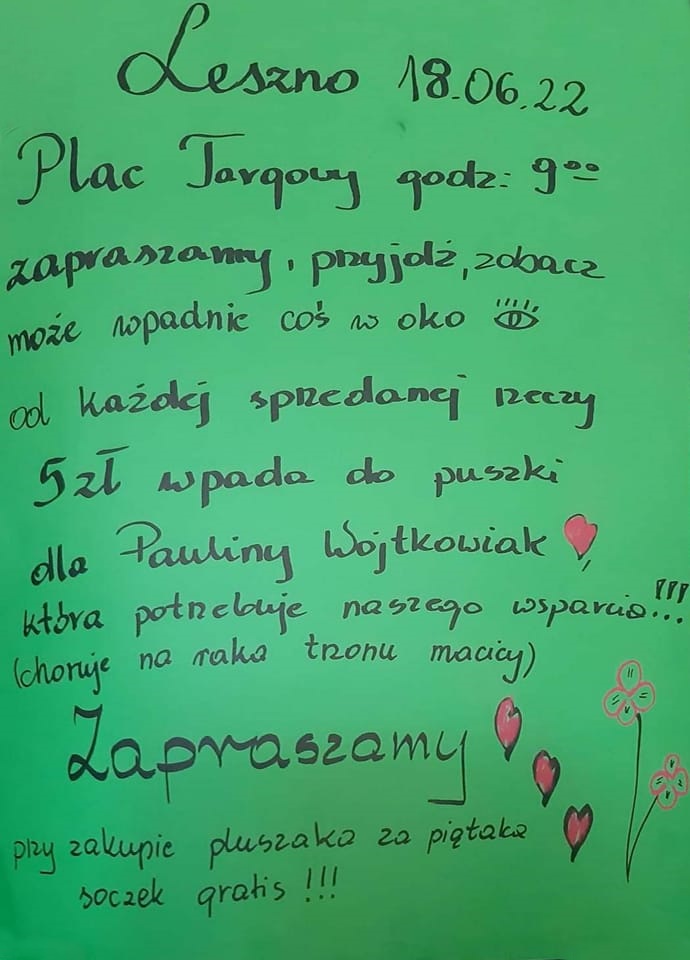 Leszno 18.06.22
Plac Targowy godz: 9⁰⁰
zapraszamy, przyjdź, zobacz
może wpadnie coś w oko
od każdej sprzedanej rzeczy
5zł wpada do puszki
dla Pauliny Wojtkowiak
która potrzebuje naszego wsparcia!!!
(choruje na raka trzonu macicy)
Zapraszamy
przy zakupie pluszaka za piątaka
soczek gratis !!!